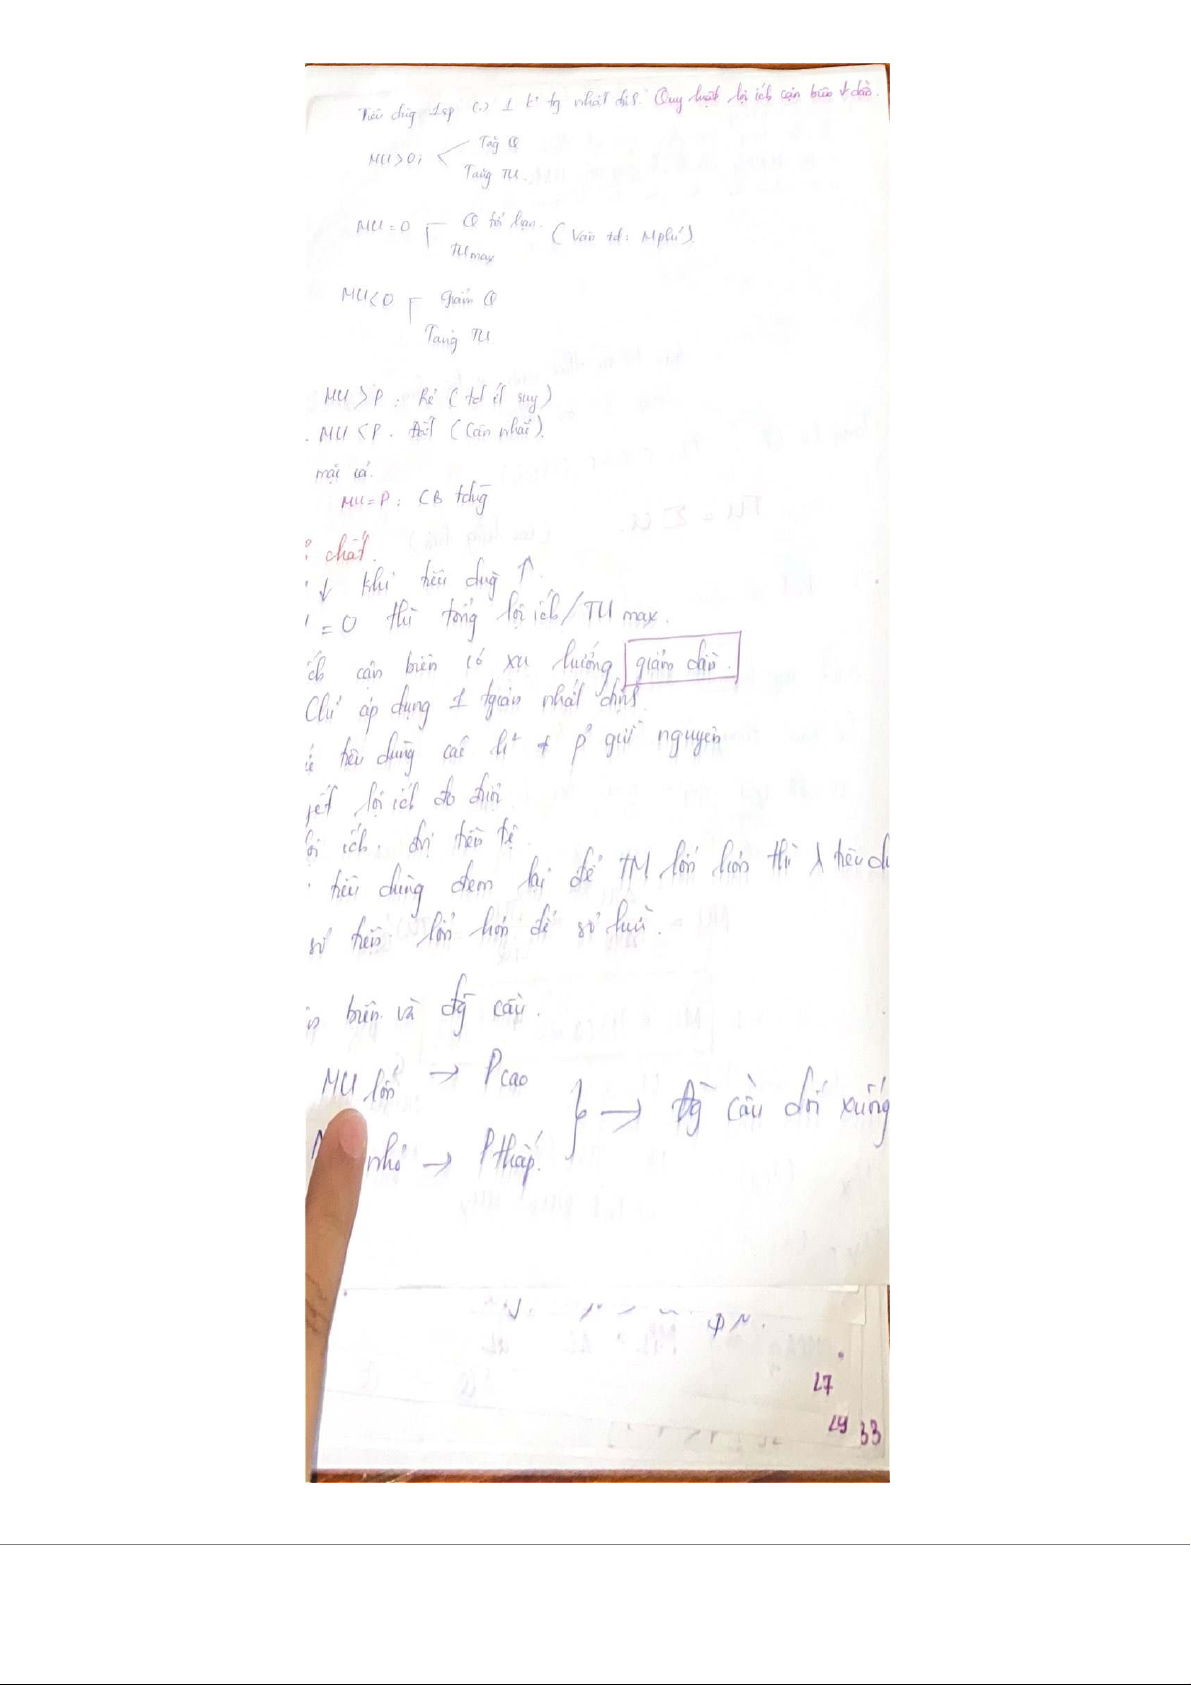 Tiêu dùg 1sp (.) 1 k' tg nhất địh. Quy luật lợi ích cận biên ↓ dần.
MU>0: Tăg Q
Tăng TU.
MU=0 Q tới hạn. (Vẫn td: Mphí).
TUmax
MU<0 giảm Q
Tăng TU
MU > P: Rẻ (td ít suy)
MU < P. Đắt (Cân nhắc).
mặc cả.
MU = P: CB tdùg
chất.
↓ khi tiêu dùg ↑.
= 0 thì tổng lợi ích/TU max.
ích cận biên có xu hướng giảm dần.
Chỉ áp dụng 1 tgian nhất định.
tiêu dùng các h² + p² giữ nguyên
lợi ích đo được
ích: đvị tiền tệ.
tiêu dùng đem lại để TM lớn hơn thì λ tiêu d
số tiền lớn hơn để sở hữu.
biên và đg cầu.
MU lớn → P cao
nhỏ → P thấp. } → Đg cầu dốc xuống
27
29 33